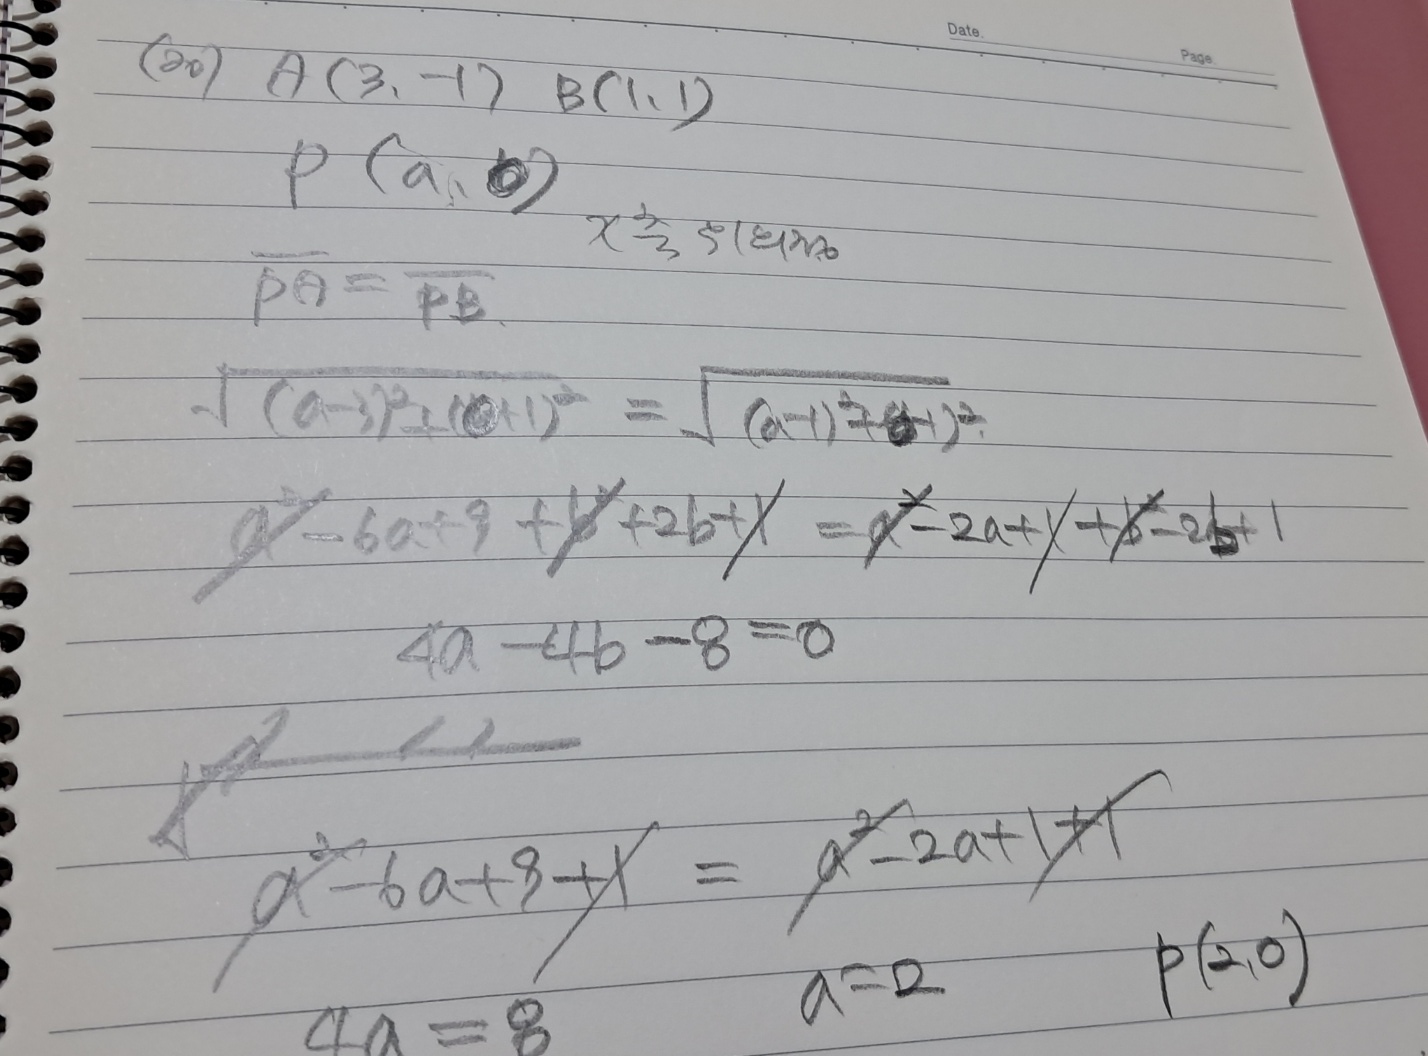 Date.
Page
(20) A(3, -1) B(1, 1)
P(a, 0)
PA = PB
√(a-3)²+(0+1)² = √(a-1)²+(0-1)²
a²-6a+9+b²+2b+1 = a²-2a+1+b²-2b+1
4a-4b-8=0
a²-6a+9+1 = a²-2a+1+1
4a=8
a=2
P(2,0)